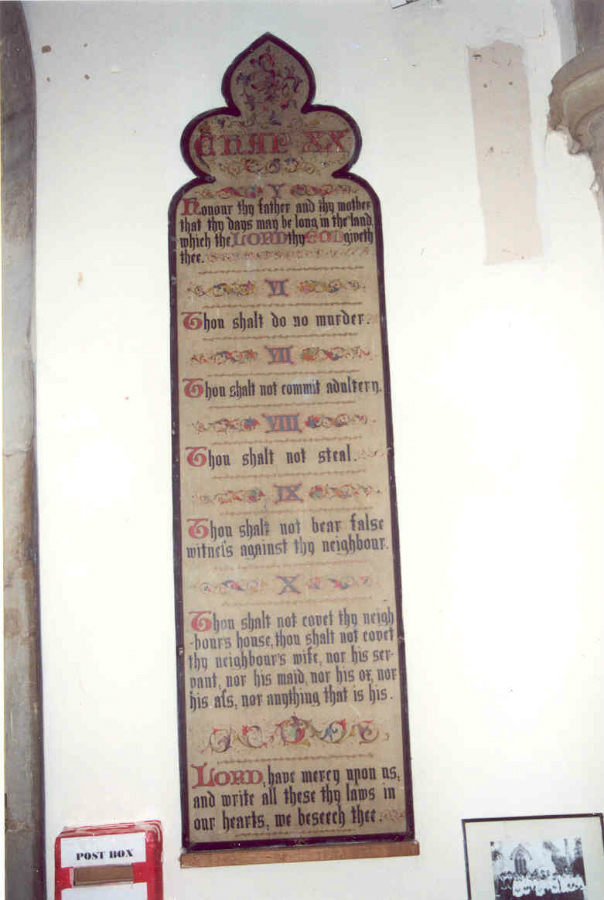 CHAP XX
V
Honour thy father and thy mother
that thy days may be long in the land,
which the LORD thy GOD giveth
thee.
VI
Thou shalt do no murder.
VII
Thou shalt not commit adultery.
VIII
Thou shalt not steal.
IX
Thou shalt not bear false
witness against thy neighbour.
X
Thou shalt not covet thy neigh
-bour's house, thou shalt not covet
thy neighbour's wife, nor his ser-
vant, nor his maid, nor his ox, nor
his ass, nor anything that is his.
LORD, have mercy upon us,
and write all these thy laws in
our hearts, we beseech thee.
POST BOX